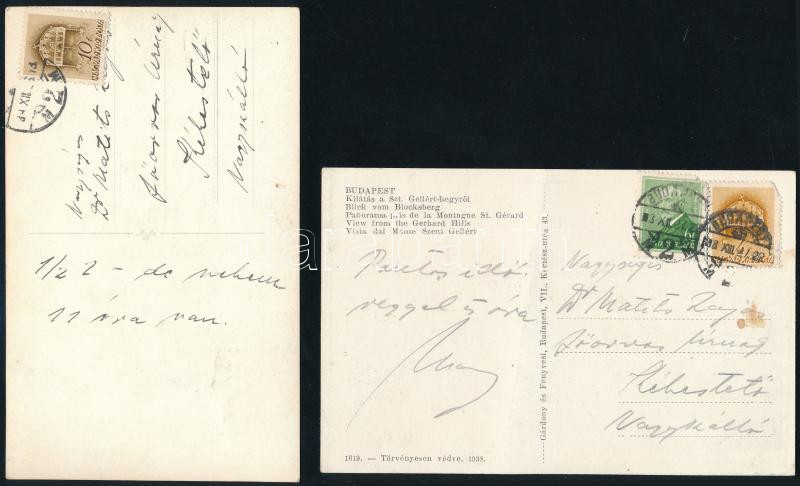 Nagys
Dr Matits Lajos
főorvos Úrnak
Kékestető
Nagykálló
1/2 2 - de nekem
11 óra van.
BUDAPEST
Kilátás a Szt. Gellért-hegyről
Blick vom Blocksberg
Panorama pris de la Montagne St. Gérard
View from the Gerhard Hills
Vista dal Monte Szent Gellért
Pontos idő.
reggel 5 óra
Nagyságos
Dr Matits Lajos
főorvos Úrnak
Kékestető
Nagykálló
Gárdony és Fenyvesi, Budapest, VII., Kertész-utca 43.
1619. — Törvényesen védve. 1938.